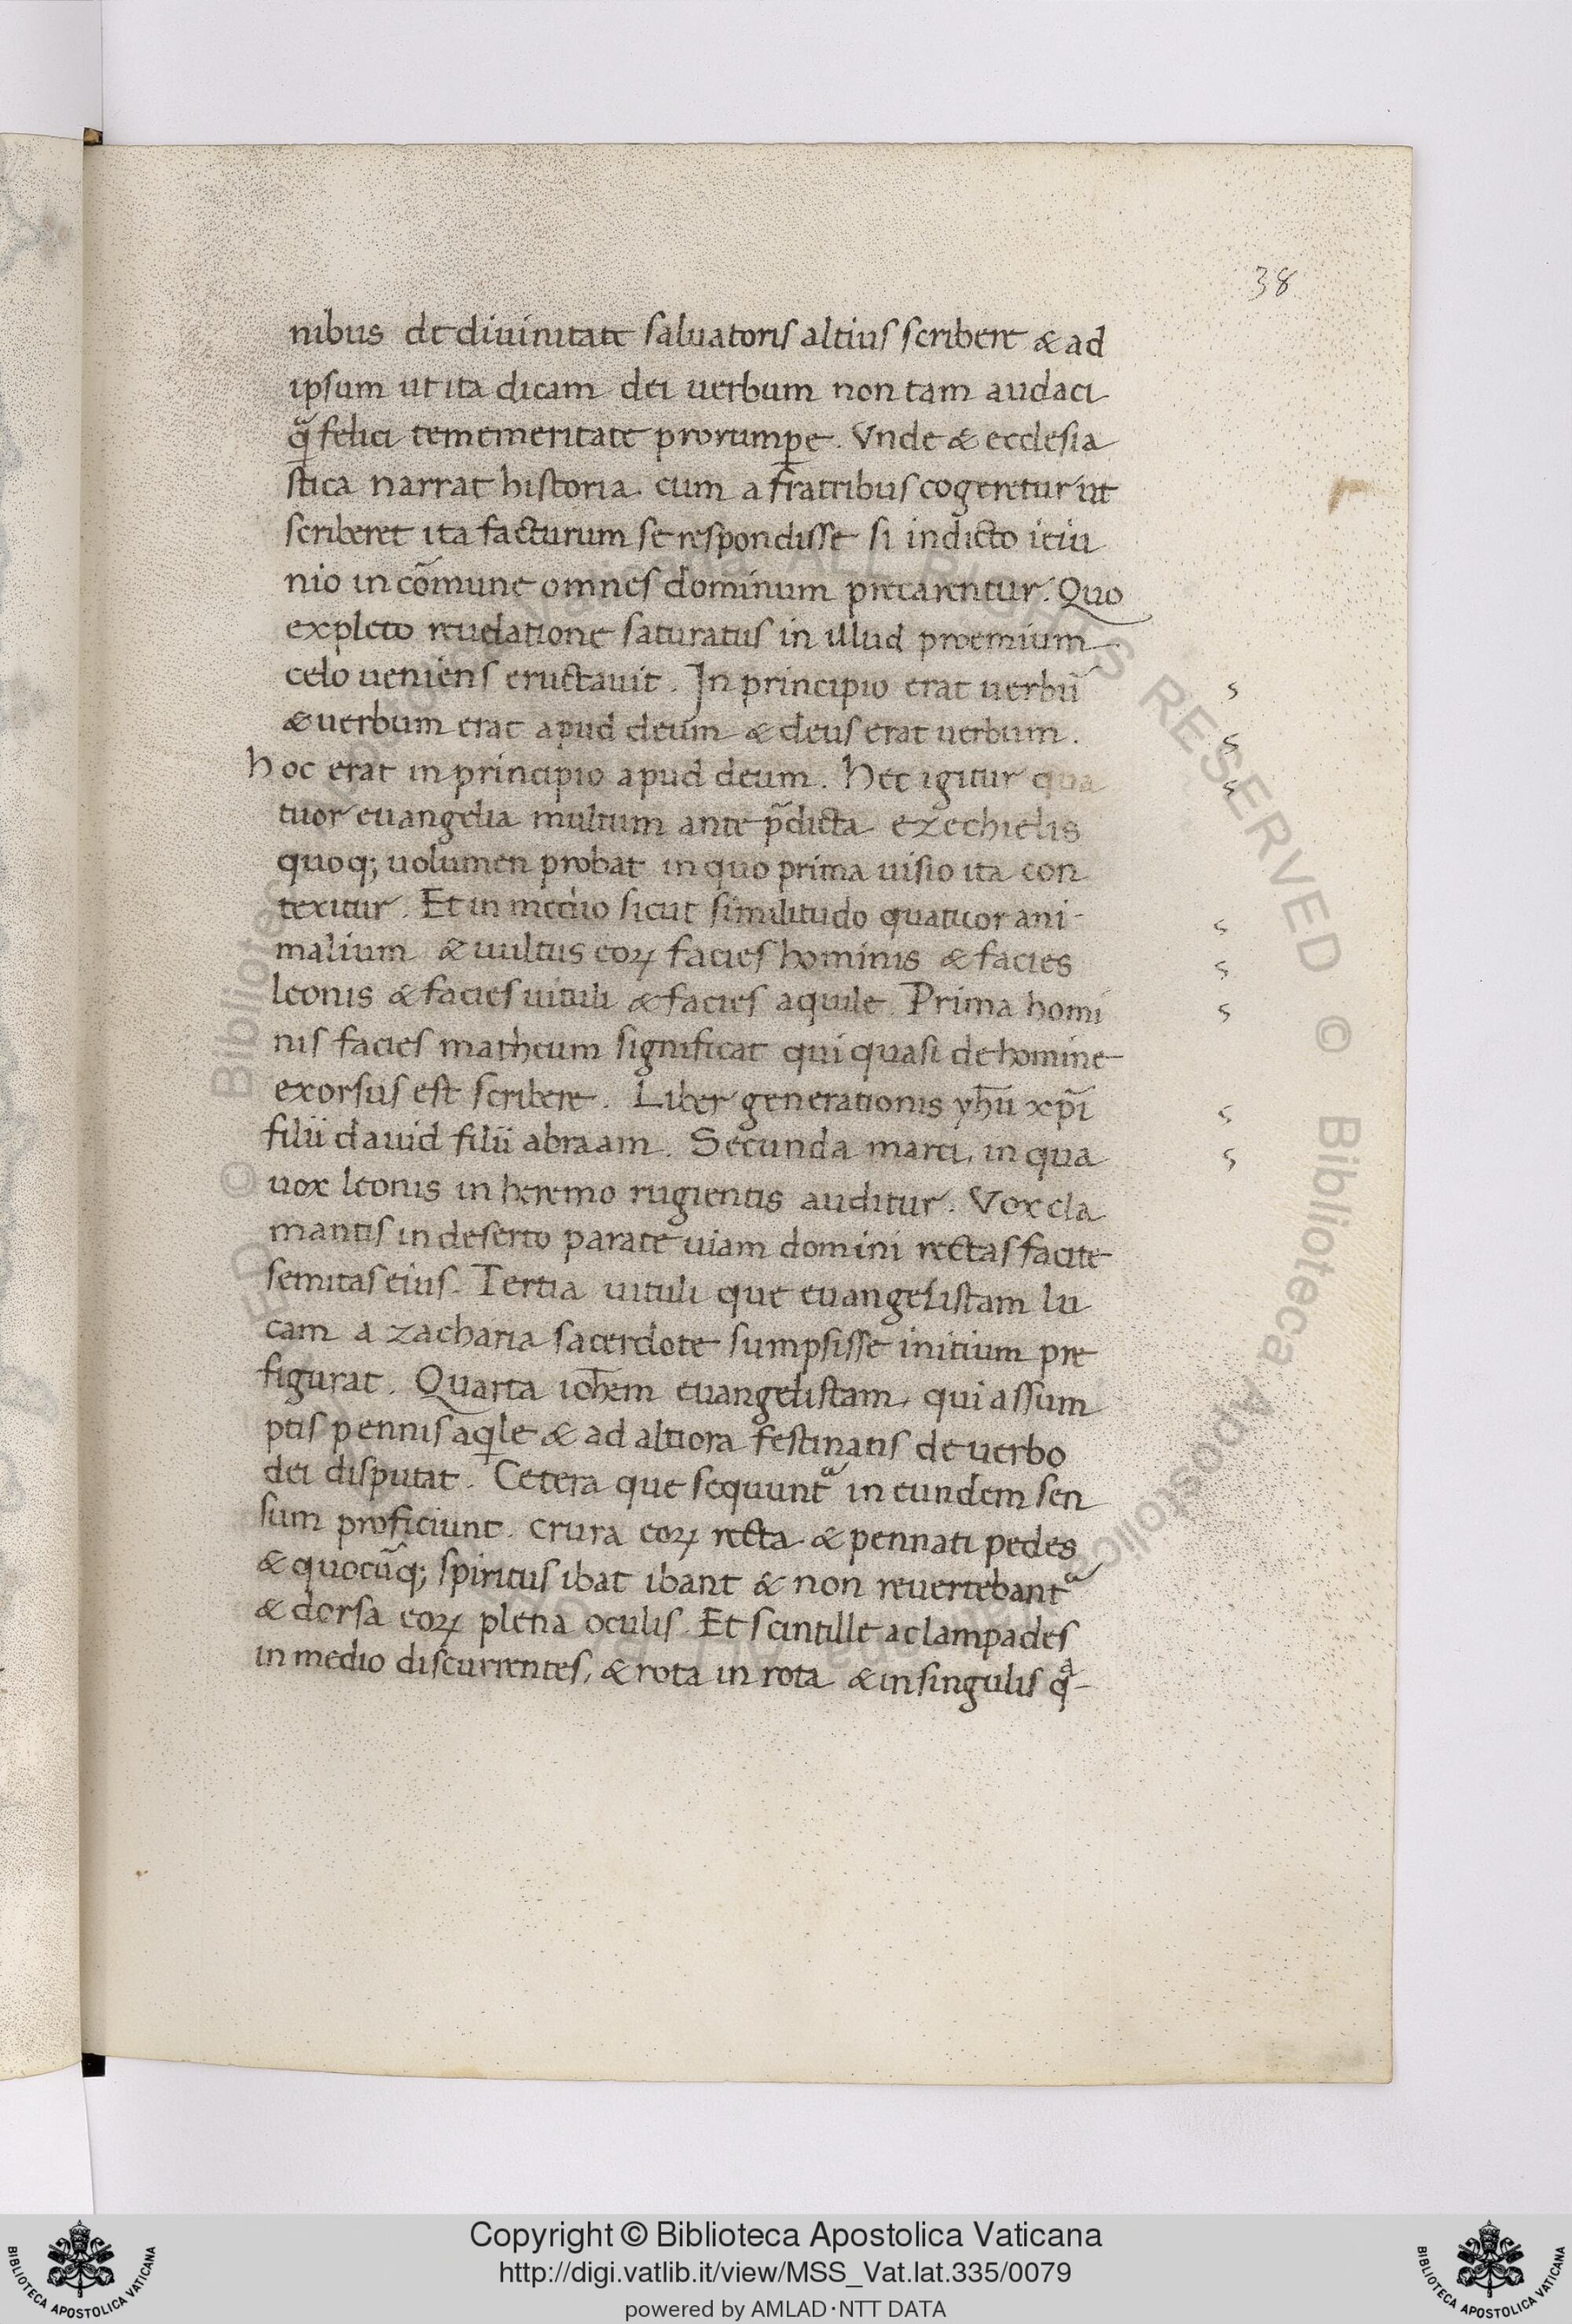 38
nibus de diuinitate saluatoris altius scribere & ad
ipsum ut ita dicam dei uerbum non tam audaci
q̃ felici tememeritate prorumꝑe. Vnde & ecclesia
stica narrat historia. cum a fratribus cogeretur ut
scriberet ita facturum se respondisse si indicto ieiu
nio in cõmune omnes dominum precarentur. Quo
expleto reuelatione saturatus in illud proemium
celo ueniens eructauit. In principio erat uerbũ
& uerbum erat apud deum & deus erat uerbum.
Hoc erat in principio apud deum. Hec igitur qua
tuor euangelia multum ante p̃dicta ezechielis
quoq; uolumen probat in quo prima uisio ita con
texitur. Et in medio sicut similitudo quatuor ani-
malium & uultus eoꝝ facies hominis & facies
leonis & facies uituli & facies aquile. Prima homi
nis facies matheum significat qui quasi de homine
exorsus est scribere. Liber generationis yhũ xp̃i
filii dauid filii abraam. Secunda marci, in qua
uox leonis in heremo rugientis auditur. Vox cla
mantis in deserto parate uiam domini rectas facite
semitas eius. Tertia uituli que euangelistam lu
cam a zacharia sacerdote sumpsisse initium pre
figurat. Quarta ioh̃em euangelistam, qui assum
ptis pennis aqͥle & ad altiora festinatis de uerbo
dei disputat. Cetera que sequunt᷑ in eundem sen
sum proficiunt. crura eoꝝ recta & pennati pedes
& quocũq; spiritus ibat ibant & non reuertebant᷑
& dorsa eoꝝ plena oculis. Et scintille ac lampades
in medio discurrentes, & rota in rota & in singulis qᷓ-
Copyright © Biblioteca Apostolica Vaticana
http://digi.vatlib.it/view/MSS_Vat.lat.335/0079
powered by AMLAD·NTT DATA
BIBLIOTECA APOSTOLICA VATICANA
BIBLIOTECA APOSTOLICA VATICANA